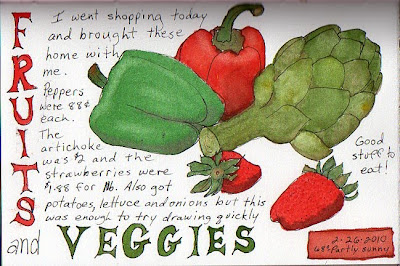 FRUITS
and VEGGIES
I went shopping today
and brought these
home with
me.
Peppers
were 88¢
each.
The
artichoke
was $2 and the
strawberries were
$1.88 for 1lb. Also got
potatoes, lettuce and onions but this
was enough to try drawing quickly
Good
stuff to
eat!
2.26.2010
48° Partly sunny